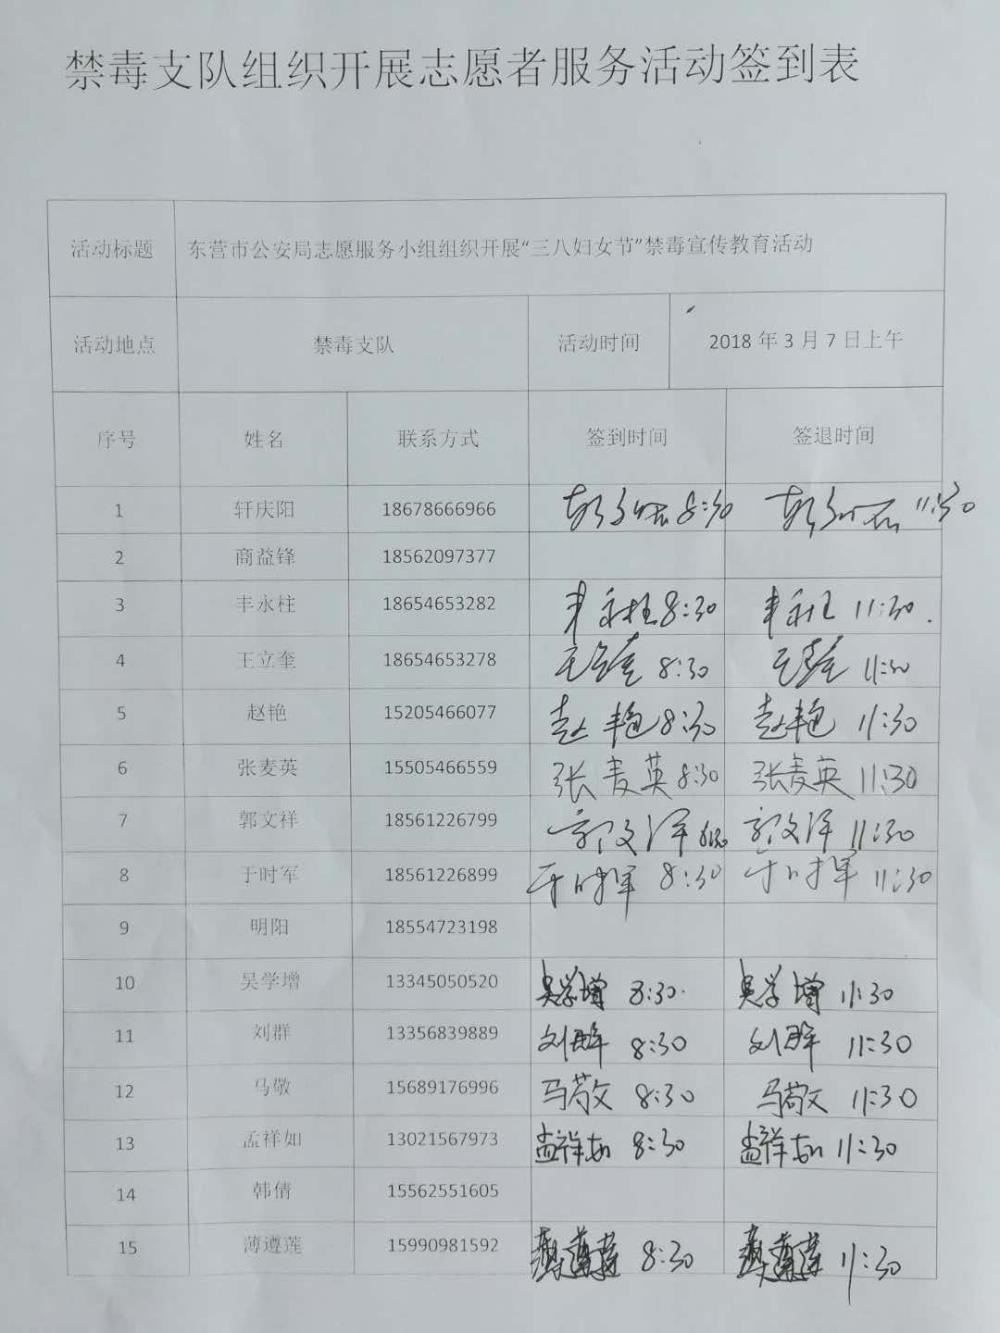 禁毒支队组织开展志愿者服务活动签到表
活动标题 东营市公安局志愿服务小组组织开展“三八妇女节”禁毒宣传教育活动
活动地点 禁毒支队 活动时间 2018 年 3 月 7 日上午
序号 姓名 联系方式 签到时间 签退时间
1 轩庆阳 18678666966 8:30 11:30
2 商益锋 18562097377
3 丰永柱 18654653282 丰永柱 8:30 丰永柱 11:30
4 王立奎 18654653278 王立奎 8:30 王立奎 11:30
5 赵艳 15205466077 赵艳 8:30 赵艳 11:30
6 张麦英 15505466559 张麦英 8:30 张麦英 11:30
7 郭文祥 18561226799 郭文祥 8:30 郭文祥 11:30
8 于时军 18561226899 于时军 8:30 于时军 11:30
9 明阳 18554723198
10 吴学增 13345050520 吴学增 8:30 吴学增 11:30
11 刘群 13356839889 刘群 8:30 刘群 11:30
12 马敬 15689176996 马敬文 8:30 马敬文 11:30
13 孟祥如 13021567973 孟祥如 8:30 孟祥如 11:30
14 韩倩 15562551605
15 薄遵莲 15990981592 薄遵莲 8:30 薄遵莲 11:30